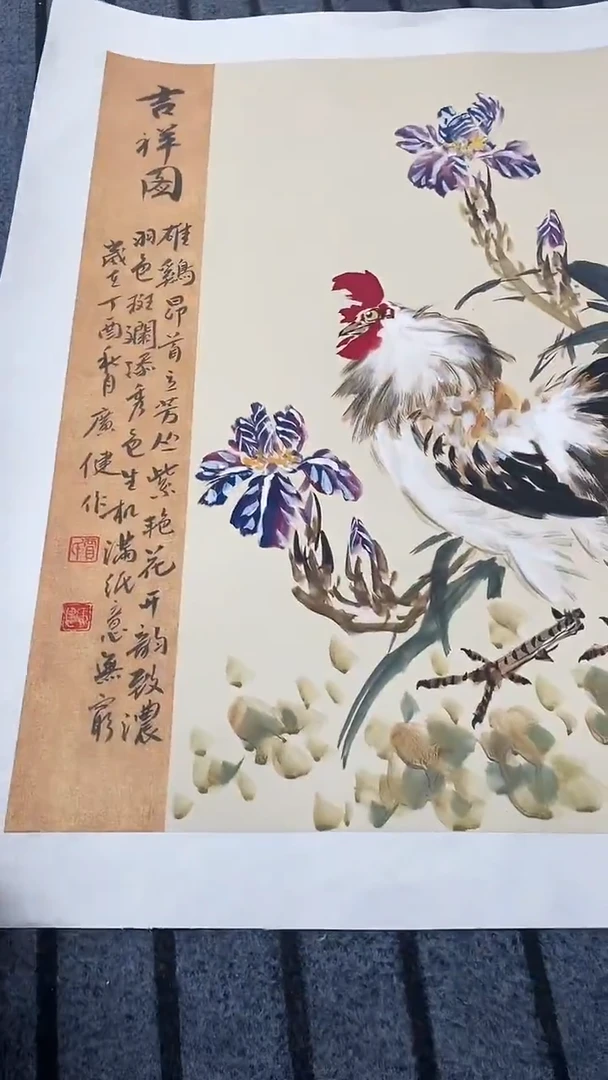 吉祥图
雄鷄昂首立芳丛紫艳花开韵致濃
羽色斑斓添秀色生机满纸意無窮
歲在丁酉秋月廣健作